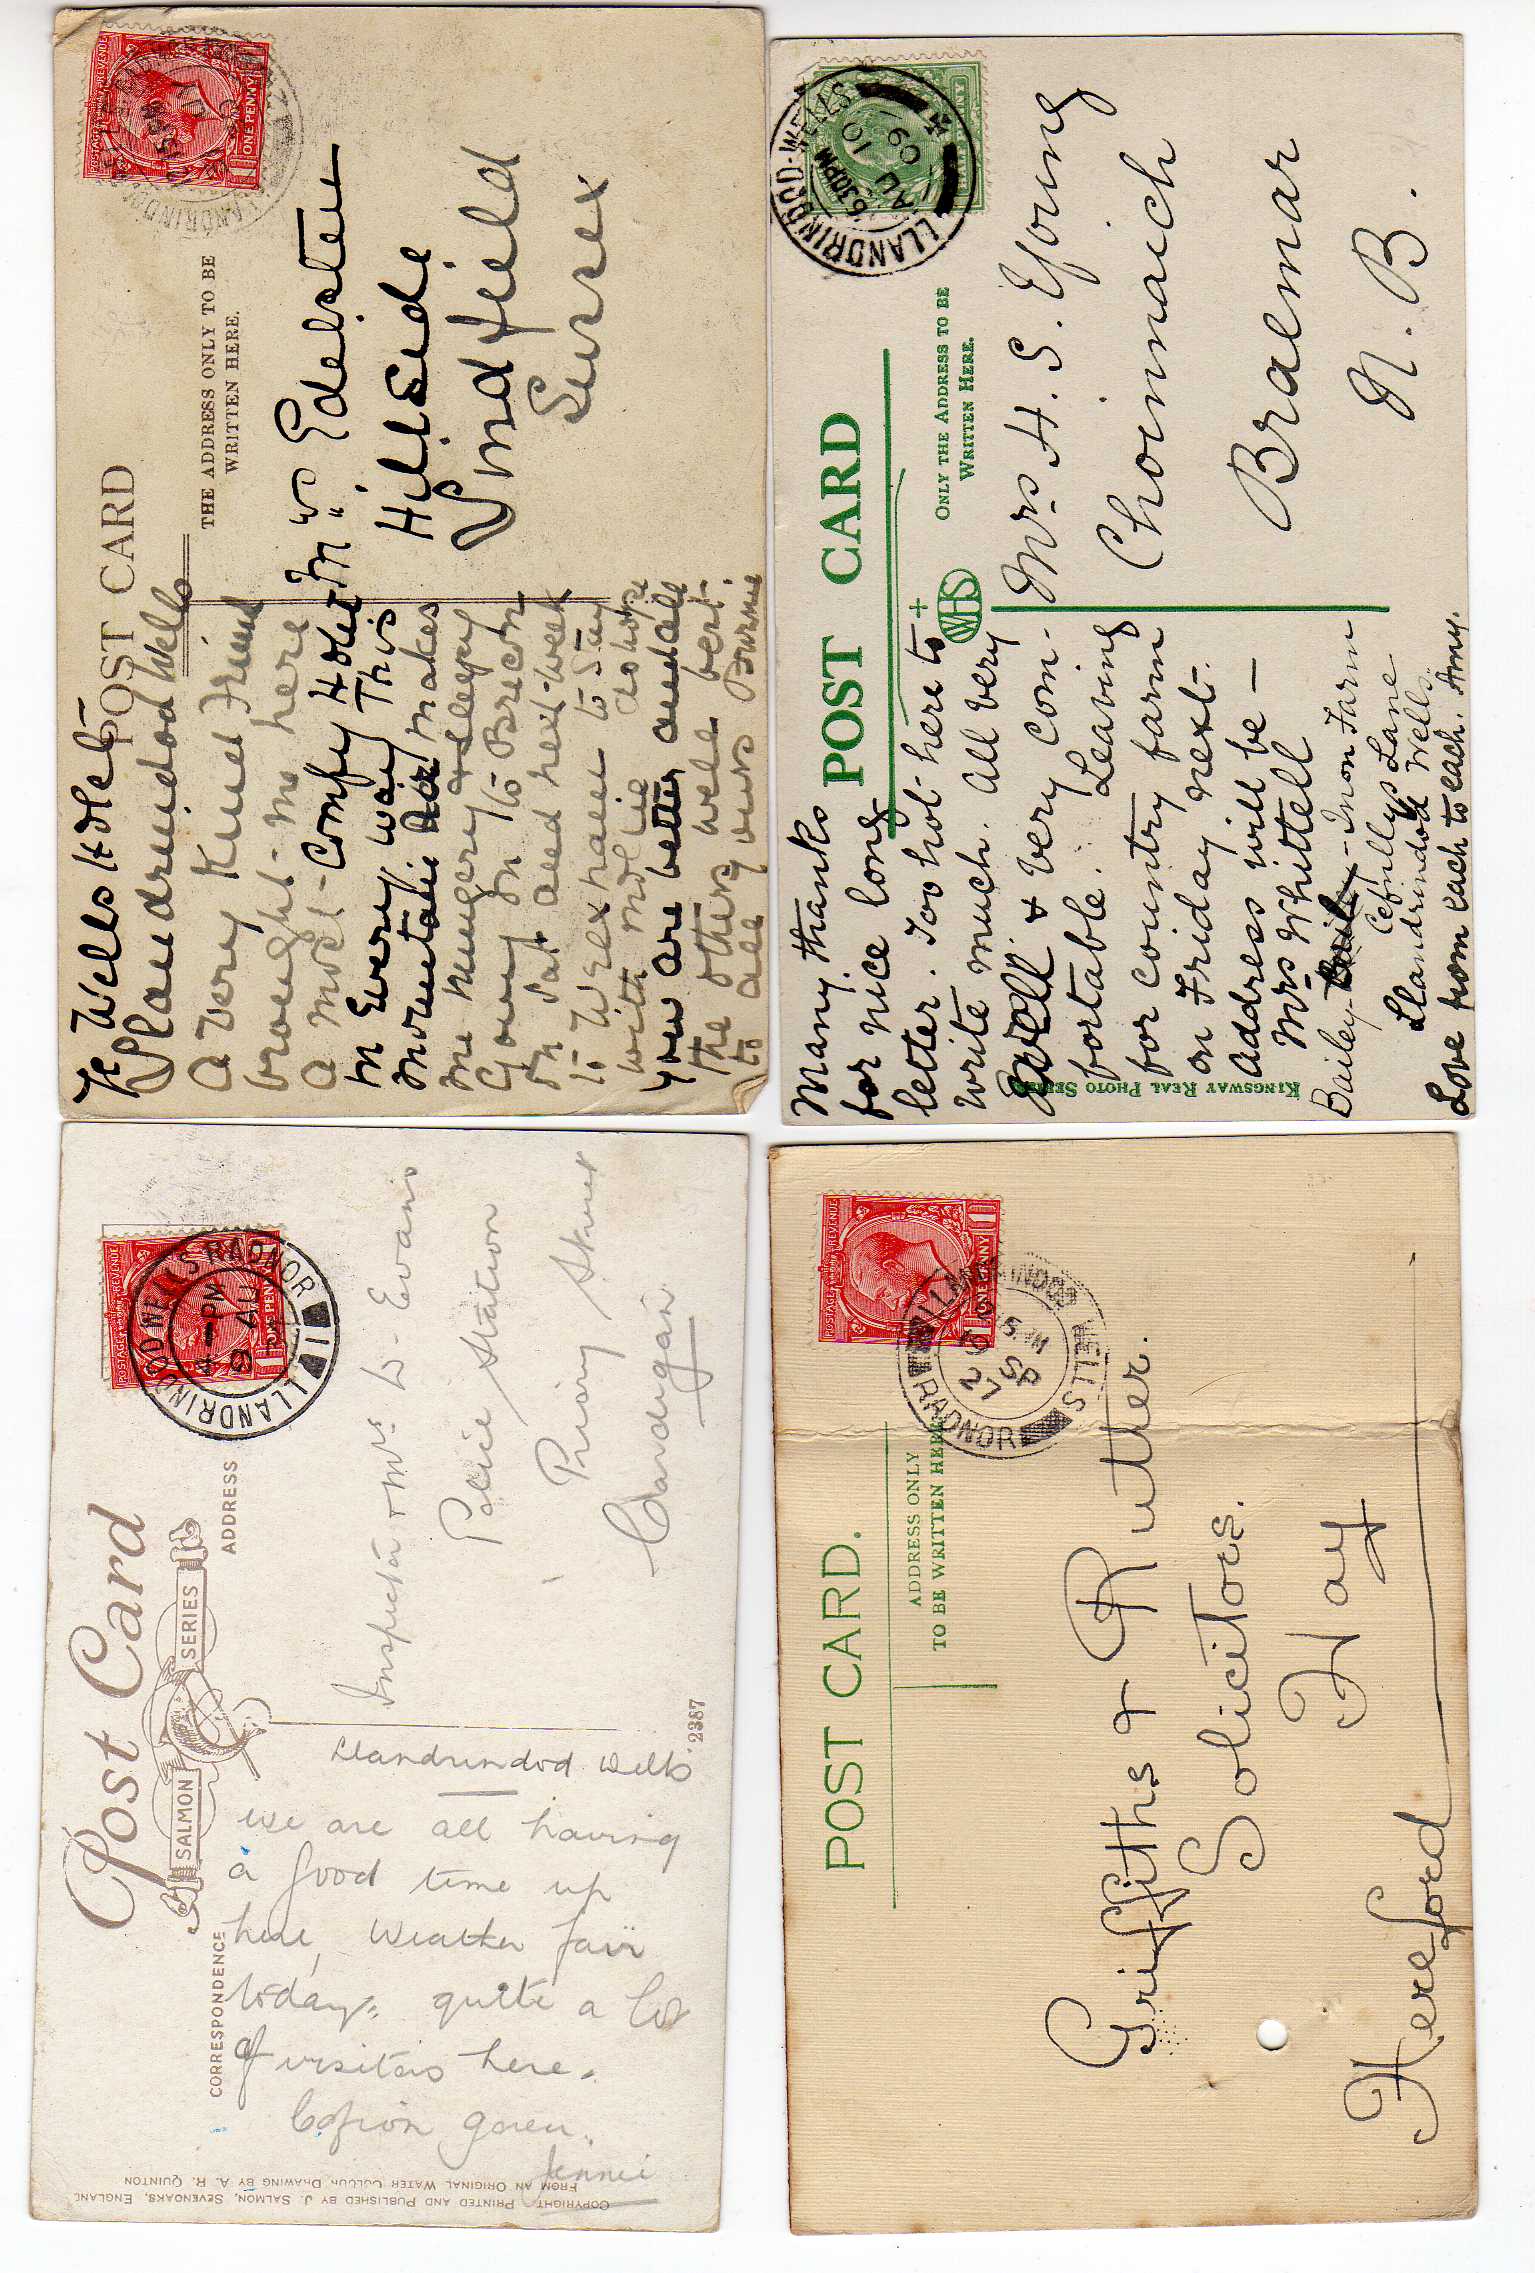 POST CARD
THE ADDRESS ONLY TO BE
WRITTEN HERE.
POSTAGE REVENUE
ONE PENNY
LLANDRINDOD
The Wells Hotel-
Llandrindod Wells
A very kind friend
brought me here
a most - Comfy Hotel
in every way This
mountain air makes
me hungery & sleepy
Going on to Brecon
on Sat. and next week
to
with Mollie do hope
you are better and all
the others well best.
to all yours
Mrs
Hillside
Lindfield
Sussex
POST CARD
ONLY THE ADDRESS TO BE
WRITTEN HERE.
WHS
LLANDRINDOD-WELLS
6 30PM
AU 10
09
Many thanks
for nice long
letter. Too hot here to
write much. All very
well & very com-
fortable. Leaving
for country farm
on Friday next.
Address will be —
Mrs Whittell
Bailey-Einon Farm
Cefnllys Lane
Llandrindod Wells.
Love from each to each. Amy.
Mrs H. S. Ewing
Choinnaich
Braemar
N. B.
KINGSWAY REAL PHOTO SERIES
Post Card
SALMON SERIES
CORRESPONDENCE
ADDRESS
POSTAGE REVENUE
ONE PENNY
LLANDRINDOD WELLS RADNOR
4 - PM
9 AU
1
Llandrindod Wells
we are all having
a good time up
here, Weather fair
today, quite a lot
of visitors here.
Cofion goreu.
Jennie
Inspector & Mrs D. Evans
Police Station
Priory Street
Cardigan
2387
COPYRIGHT PRINTED AND PUBLISHED BY J. SALMON, SEVENOAKS, ENGLAND
FROM AN ORIGINAL WATER COLOUR DRAWING BY A. R. QUINTON
POST CARD.
ADDRESS ONLY
TO BE WRITTEN HERE
POSTAGE REVENUE
ONE PENNY
LLANDRINDOD WELLS
RADNOR
SP
27
Griffiths & Rutter.
Solicitors.
Hay
Hereford